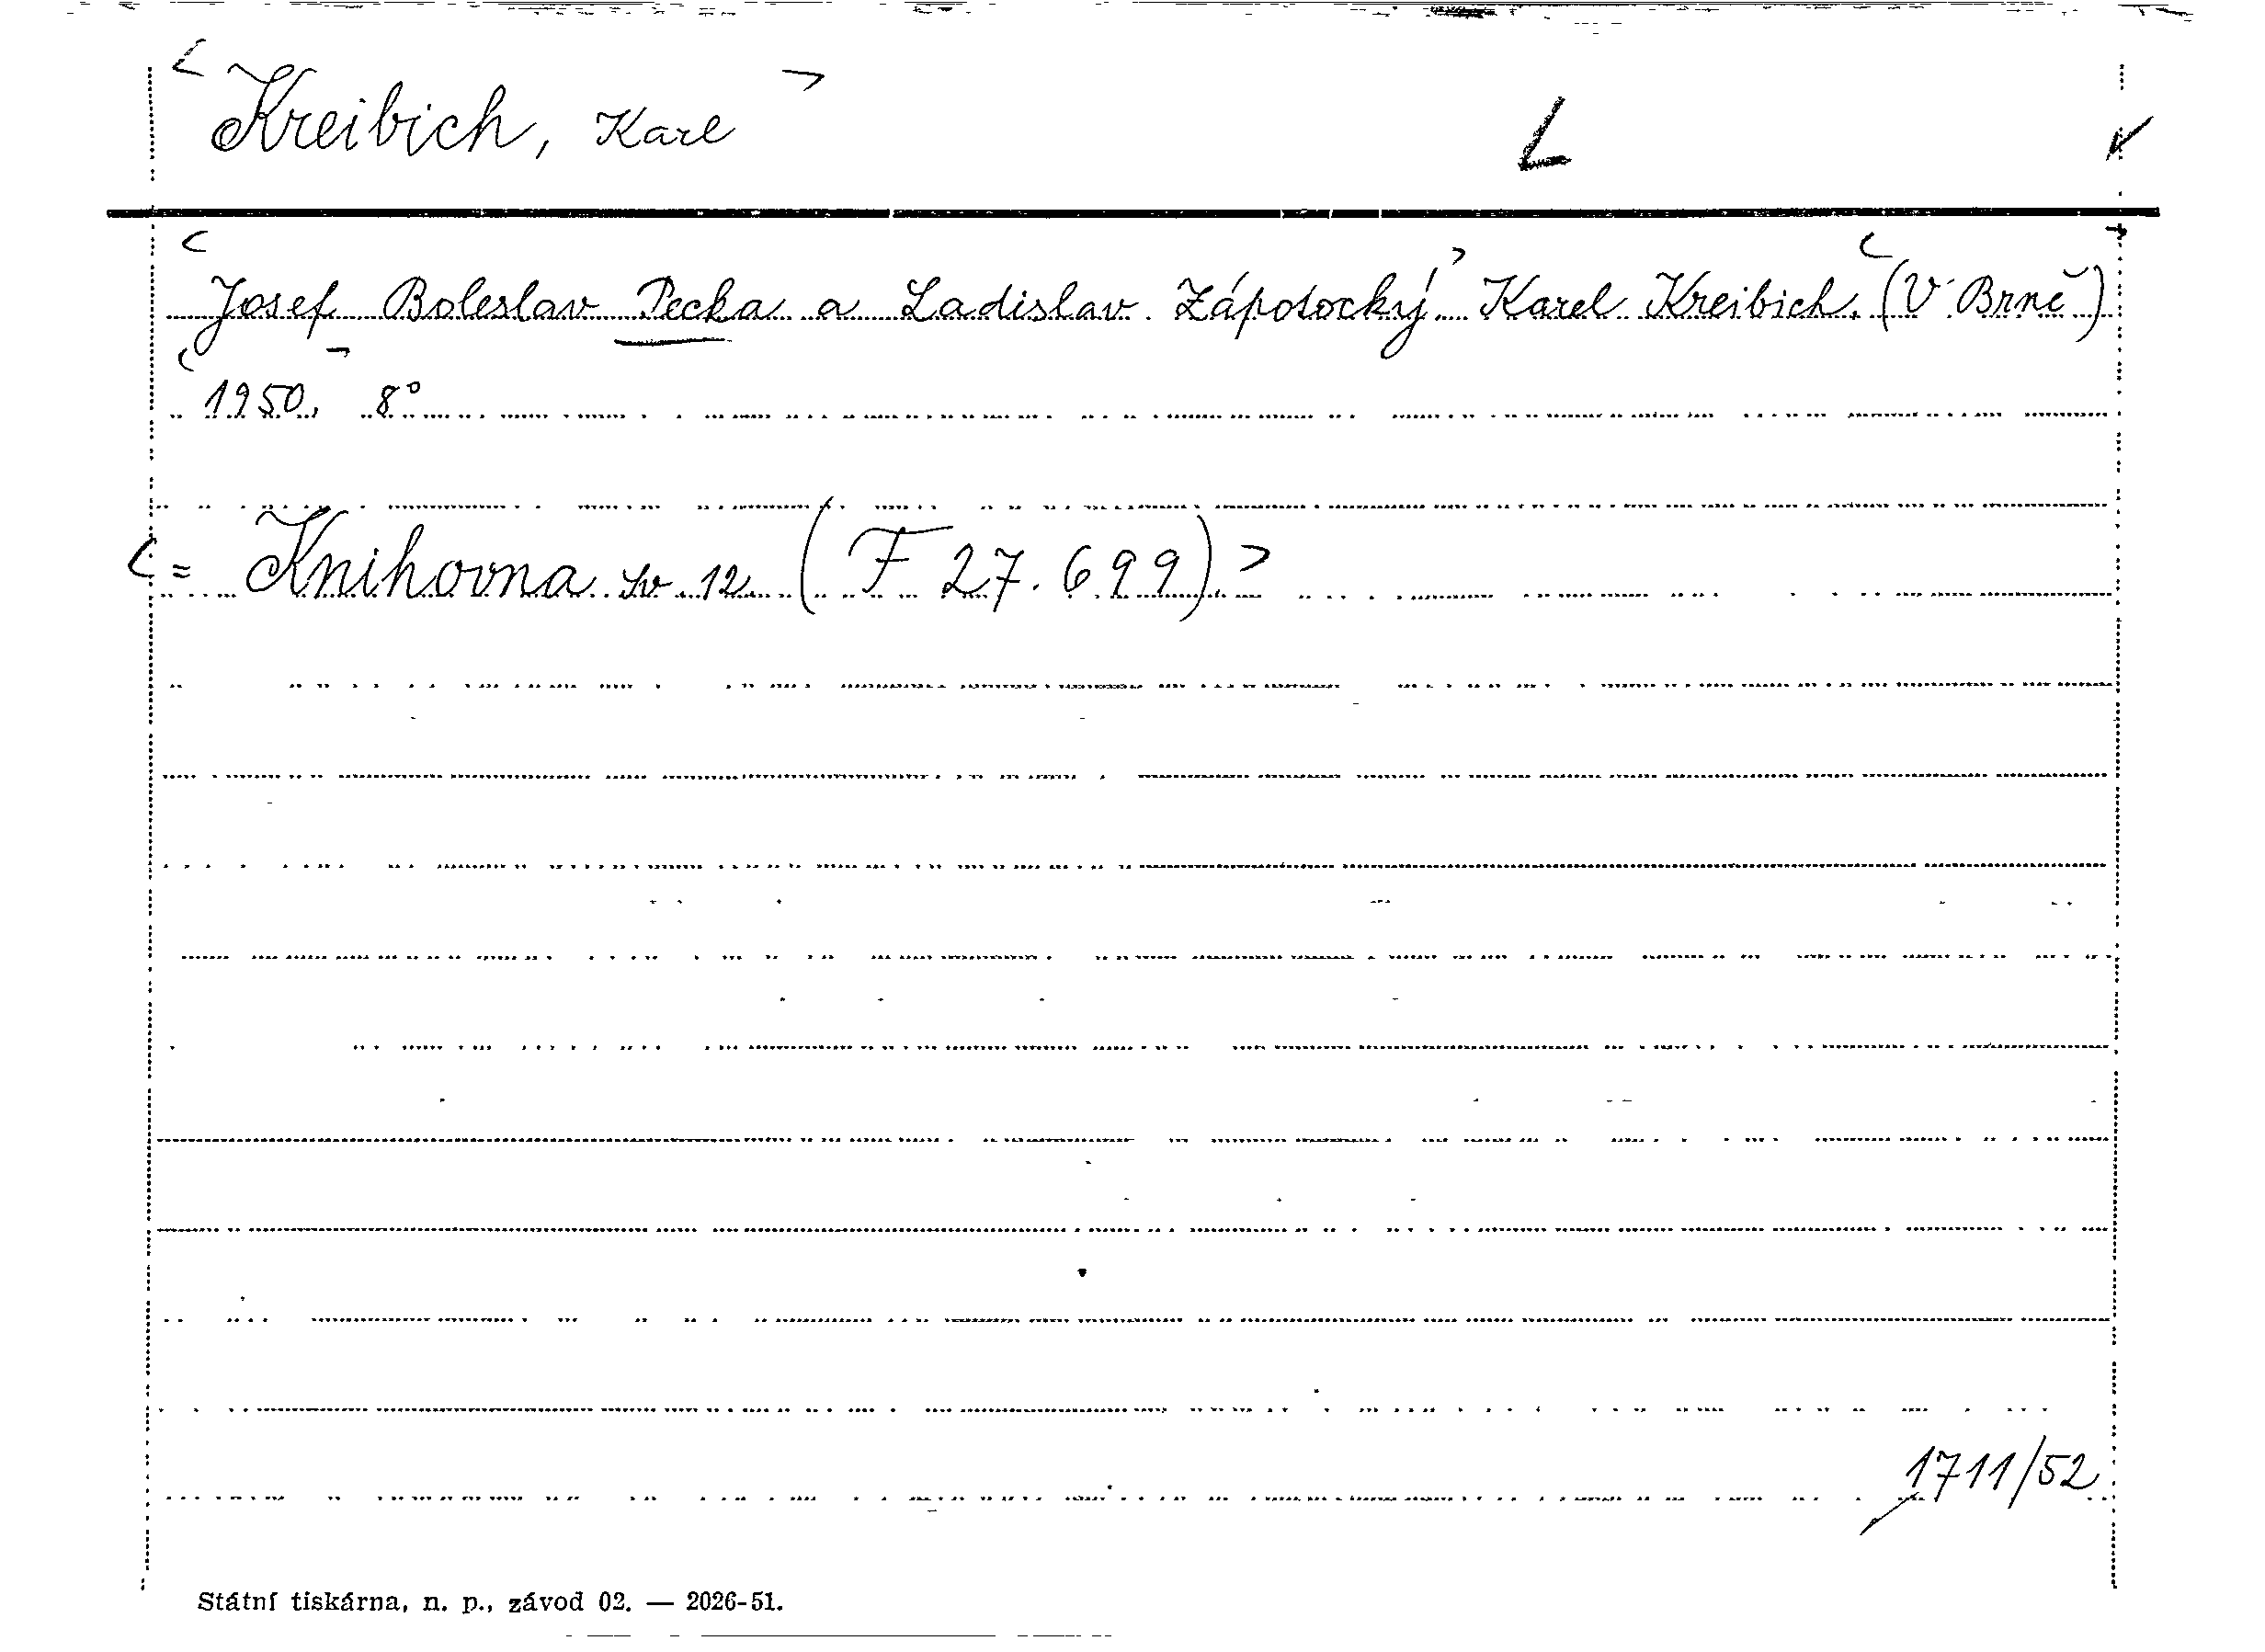 Kreibich, Karel L
Josef Boleslav Pecka a Ladislav Zápotocký. Karel Kreibich. (V Brně)
1950, 8°
= Knihovna sv. 12. (F 27.699)
1711/52
Státní tiskárna, n. p., závod 02. — 2026-51.